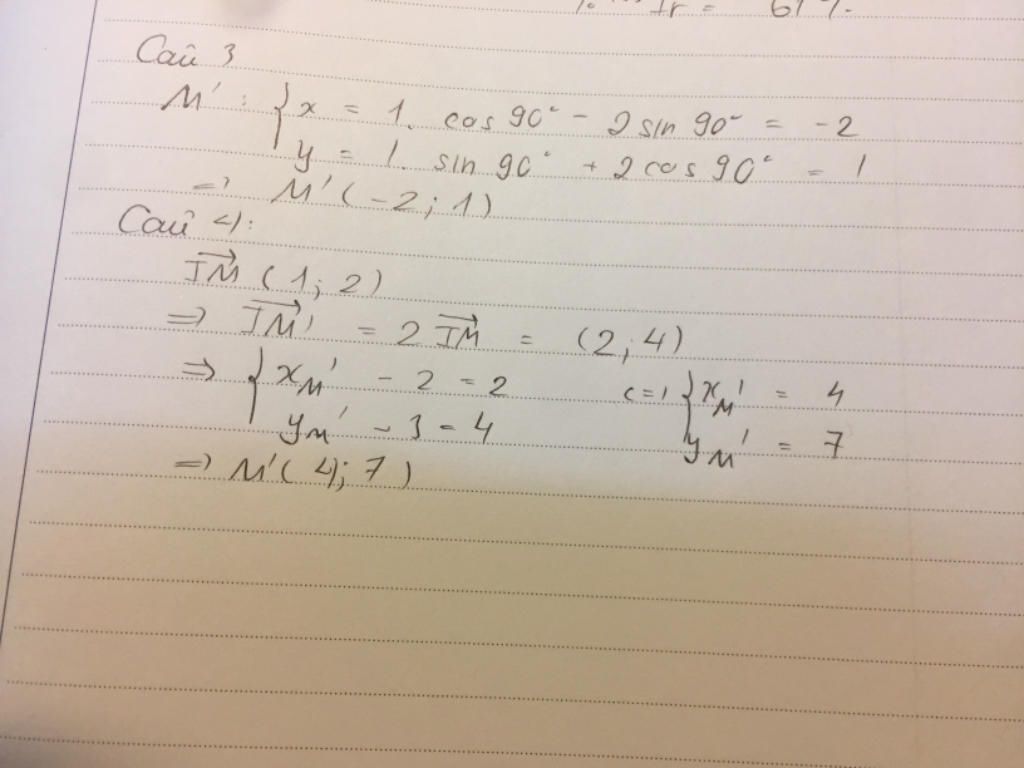 Ir = 61%.
Câu 3
M' : { x = 1. cos 90° - 2 sin 90° = -2
y = 1. sin 90° + 2 cos 90° = 1
=> M' ( -2 ; 1 )
Câu 4:
IM ( 1 ; 2 )
=> IM' = 2 IM = (2 ; 4)
=> { x_M' - 2 = 2 <=> { x_M' = 4
y_M' - 3 = 4 y_M' = 7
=> M' ( 4 ; 7 )